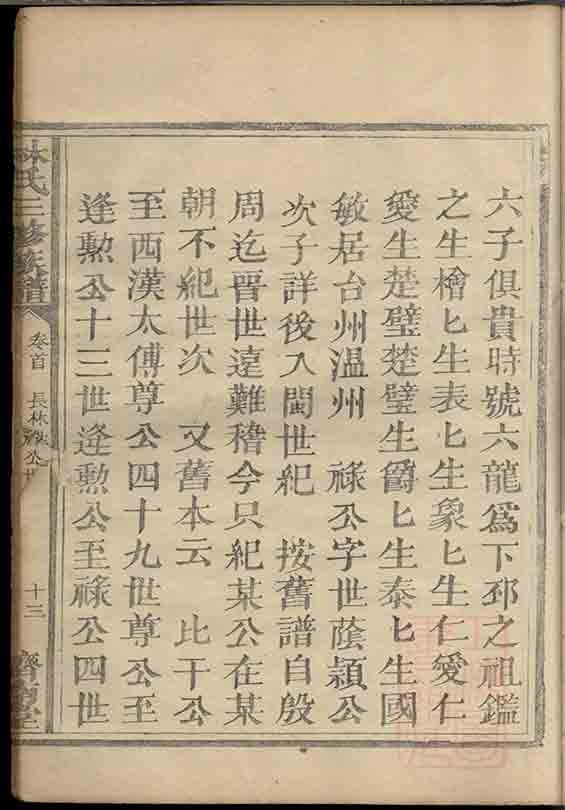 六子俱貴時號六龍為下邳之祖鑑
之生檜匕生表匕生象匕生仁愛仁
愛生楚璧楚璧生爵匕生泰匕生國
敏居台州溫州　祿公字世蔭潁公
次子詳後入閩世紀　按舊譜自殷
周迄晋世遠難稽今只紀某公在某
朝不紀世次　又舊本云　比干公
至西漢太傅尊公四十九世尊公至
逢勲公十三世逢勲公至祿公四世
林氏三修族譜
卷首
長林
十三